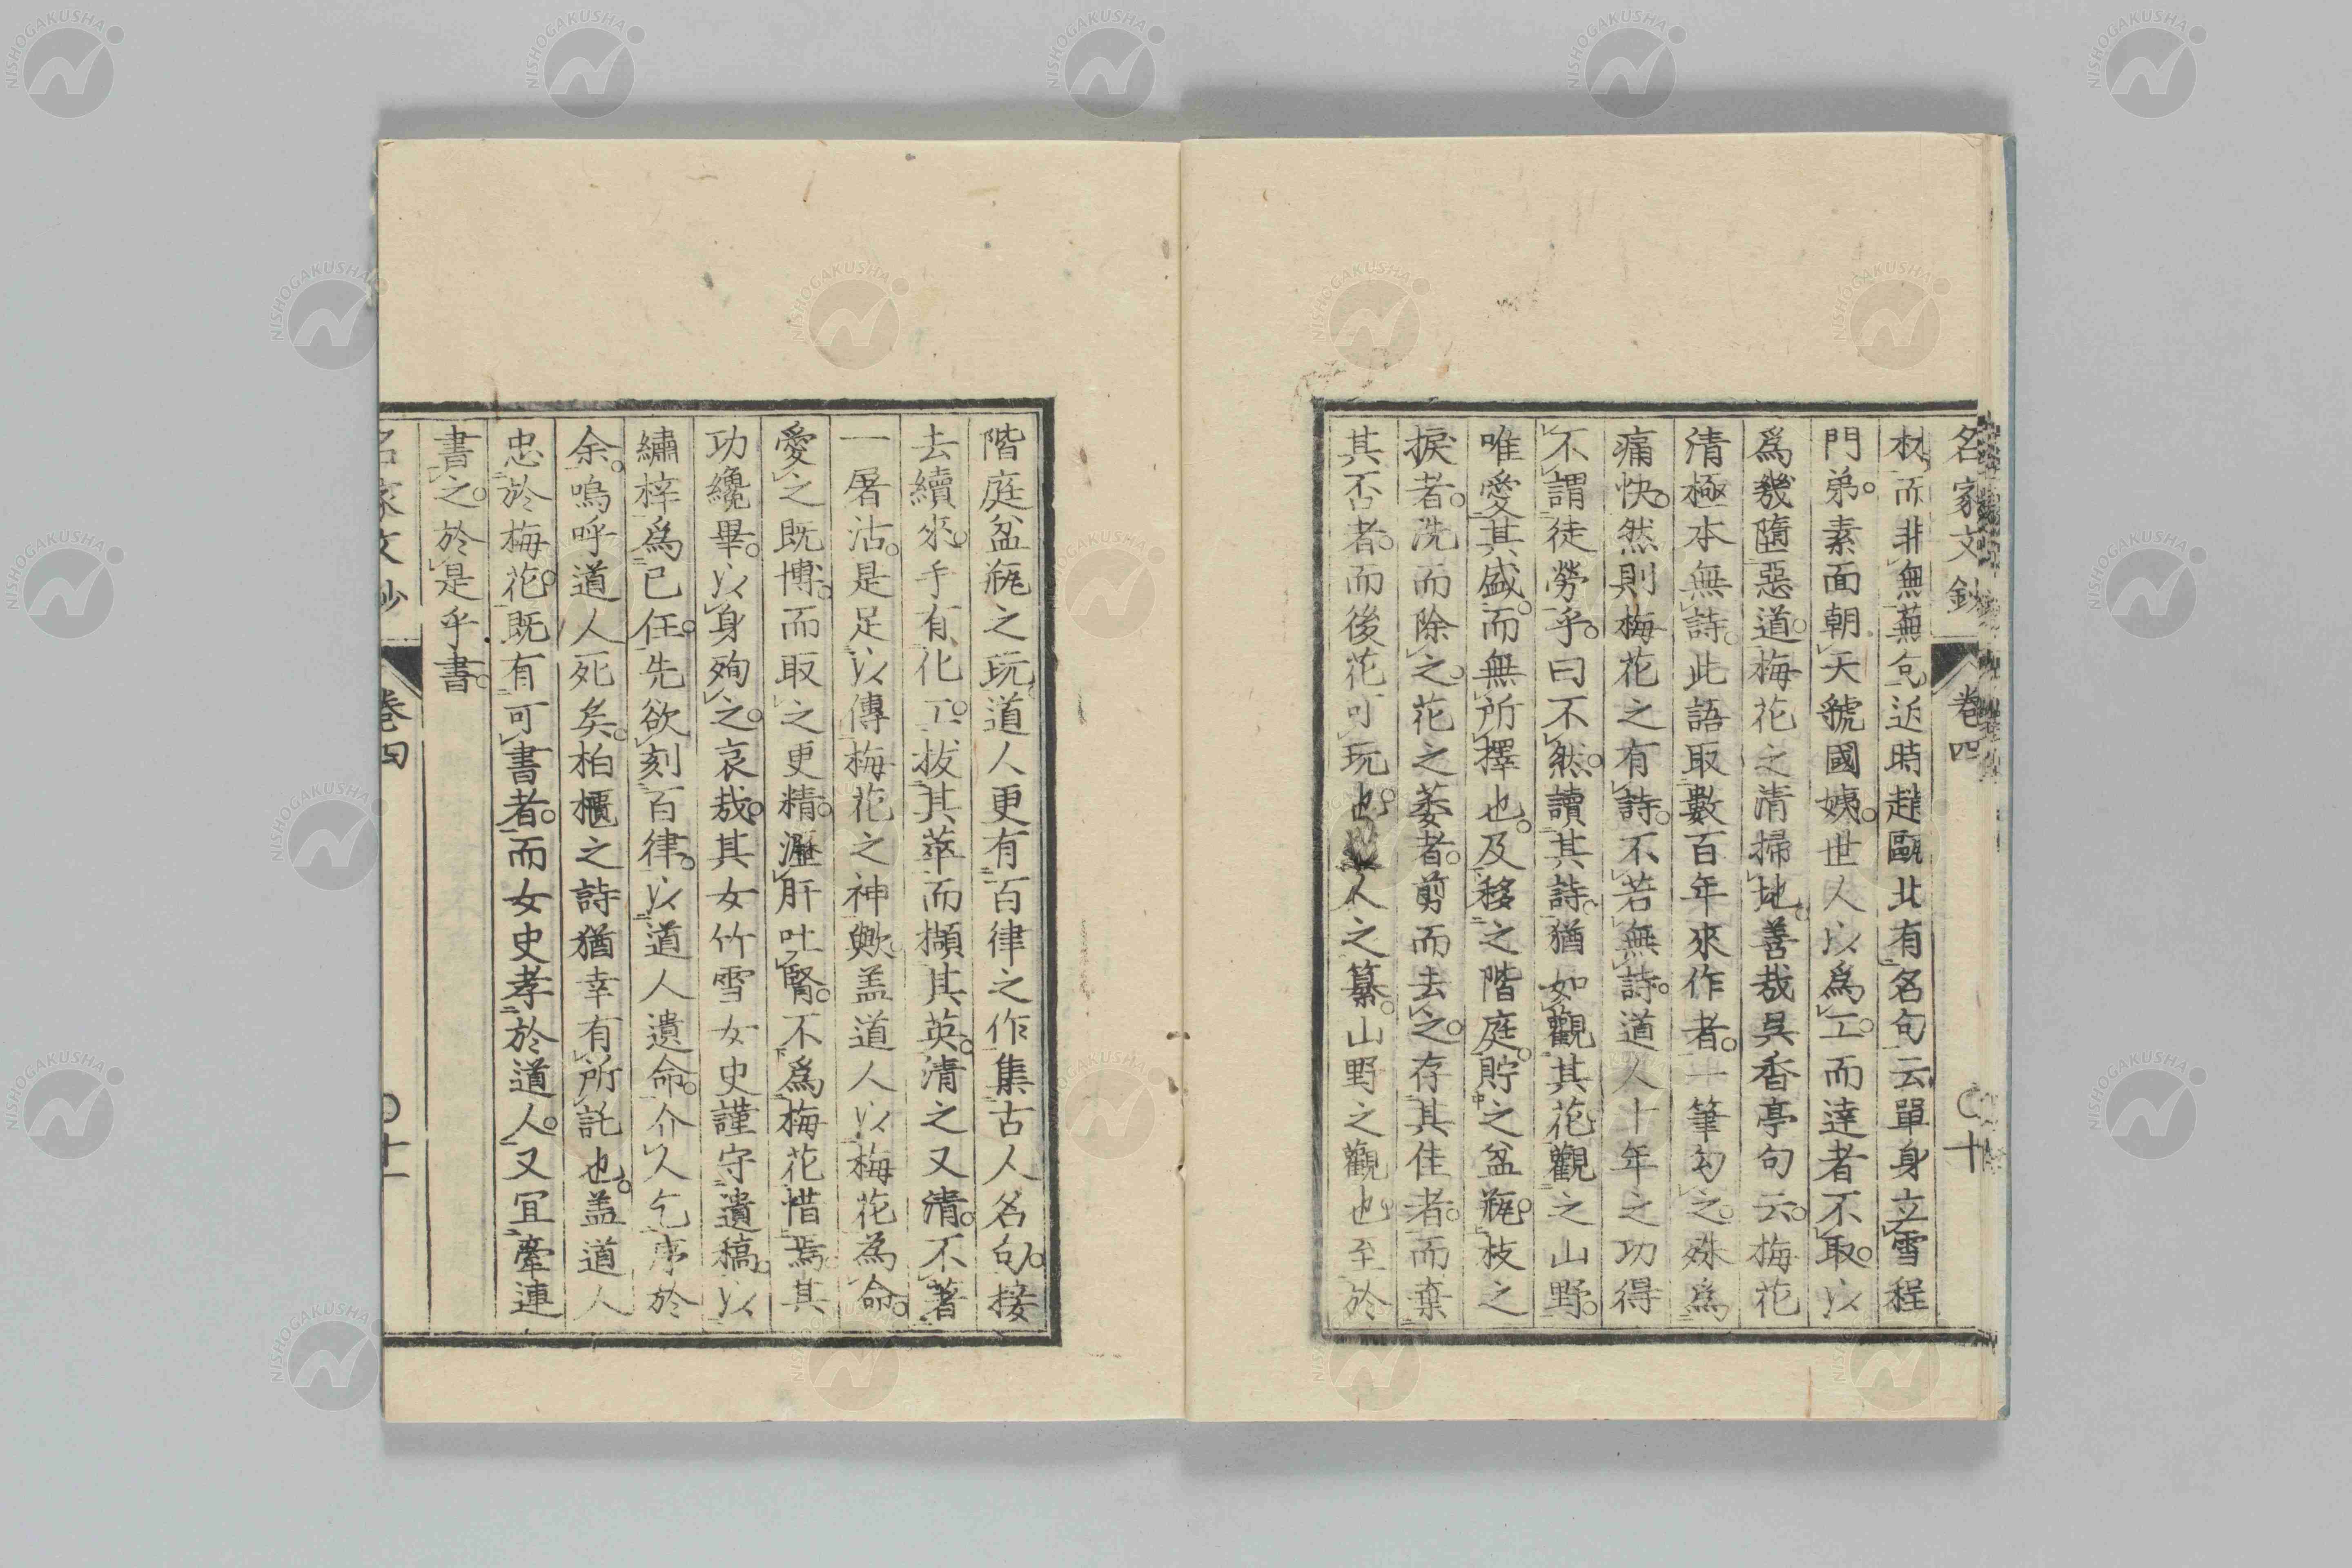 名家文鈔 卷四 〇十
材而非無蕪句近時趙甌北有名句云單身立雪程
門弟。素面朝天虢國姨。世人以爲工。而達者不取。以
爲幾墮惡道。梅花之清掃地。善哉吳香亭句云。梅花
清極本無詩。此語取數百年來作者。一筆勾之。殊爲
痛快。然則梅花之有詩。不若無詩。道人十年之功得
不謂徒勞乎。曰不然。讀其詩。猶如觀其花觀之山野。
唯愛其盛。而無所擇也。及移之階庭。貯之盆瓶。枝之
捩者。洗而除之。花之萎者。剪而去之。存其佳者。而棄
其否者。而後花可玩也。人之纂。山野之觀也。至於
階庭盆瓶之玩。道人更有百律之作集古人名句。接
去續來。手有化工。拔其萃而擷其英。清之又清。不著
一屠沽。是足以傳梅花之神歟。盖道人以梅花為命。
愛之既博。而取之更精。瀝肝吐腎。不爲梅花惜焉。其
功纔畢。以身殉之。哀哉。其女竹雪女史謹守遺稿。以
繡梓爲已任。先欲刻百律。以道人遺命。介人乞序於
余。嗚呼道人死矣。柏櫃之詩猶幸有所託也。盖道人
忠於梅花。既有可書者。而女史孝於道人。又宜牽連
書之。於是乎書。
名家文鈔 卷四 〇十一